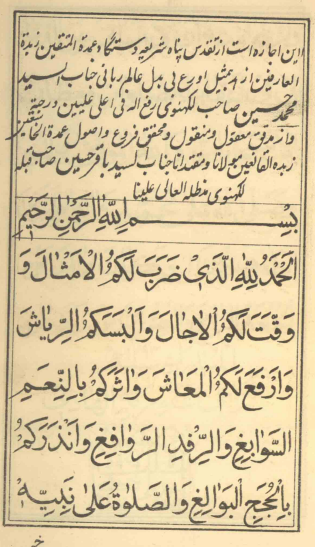 این اجازه است از تقدس پناه شریعه دستگاه عمدة المتقین زبدة
العارفین ازهد بی مثیل اورع بی بدل عالم ربانی جناب السید
محمد حسین صاحب لکهنوی رفع الله فی اعلی علیین درجته
و از مدقق معقول و منقول و محقق فروع و اصول عمدة الخاشعین
زبدة القانعین مولانا و مقتدانا جناب السید باقر حسین صاحب قبله
لکهنوی مد ظله العالی علینا
بسم الله الرحمن الرحیم
اَلْحَمْدُ لِلّٰهِ الَّذِیْ ضَرَبَ لَكُمُ الْاَمْثَالَ وَ
وَقَّتَ لَكُمُ الْاٰجَالَ وَاَلْبَسَكُمُ الرِّیَاشَ
وَاَرْفَعَ لَكُمُ الْمَعَاشَ وَاٰثَرَكُمْ بِالنِّعَمِ
السَّوَابِغِ وَالرِّفَدِ الرَّوَافِغِ وَاَنْذَرَكُمْ
بِالْحُجَجِ الْبَوَالِغِ وَالصَّلٰوةُ عَلٰی نَبِیِّهٖ